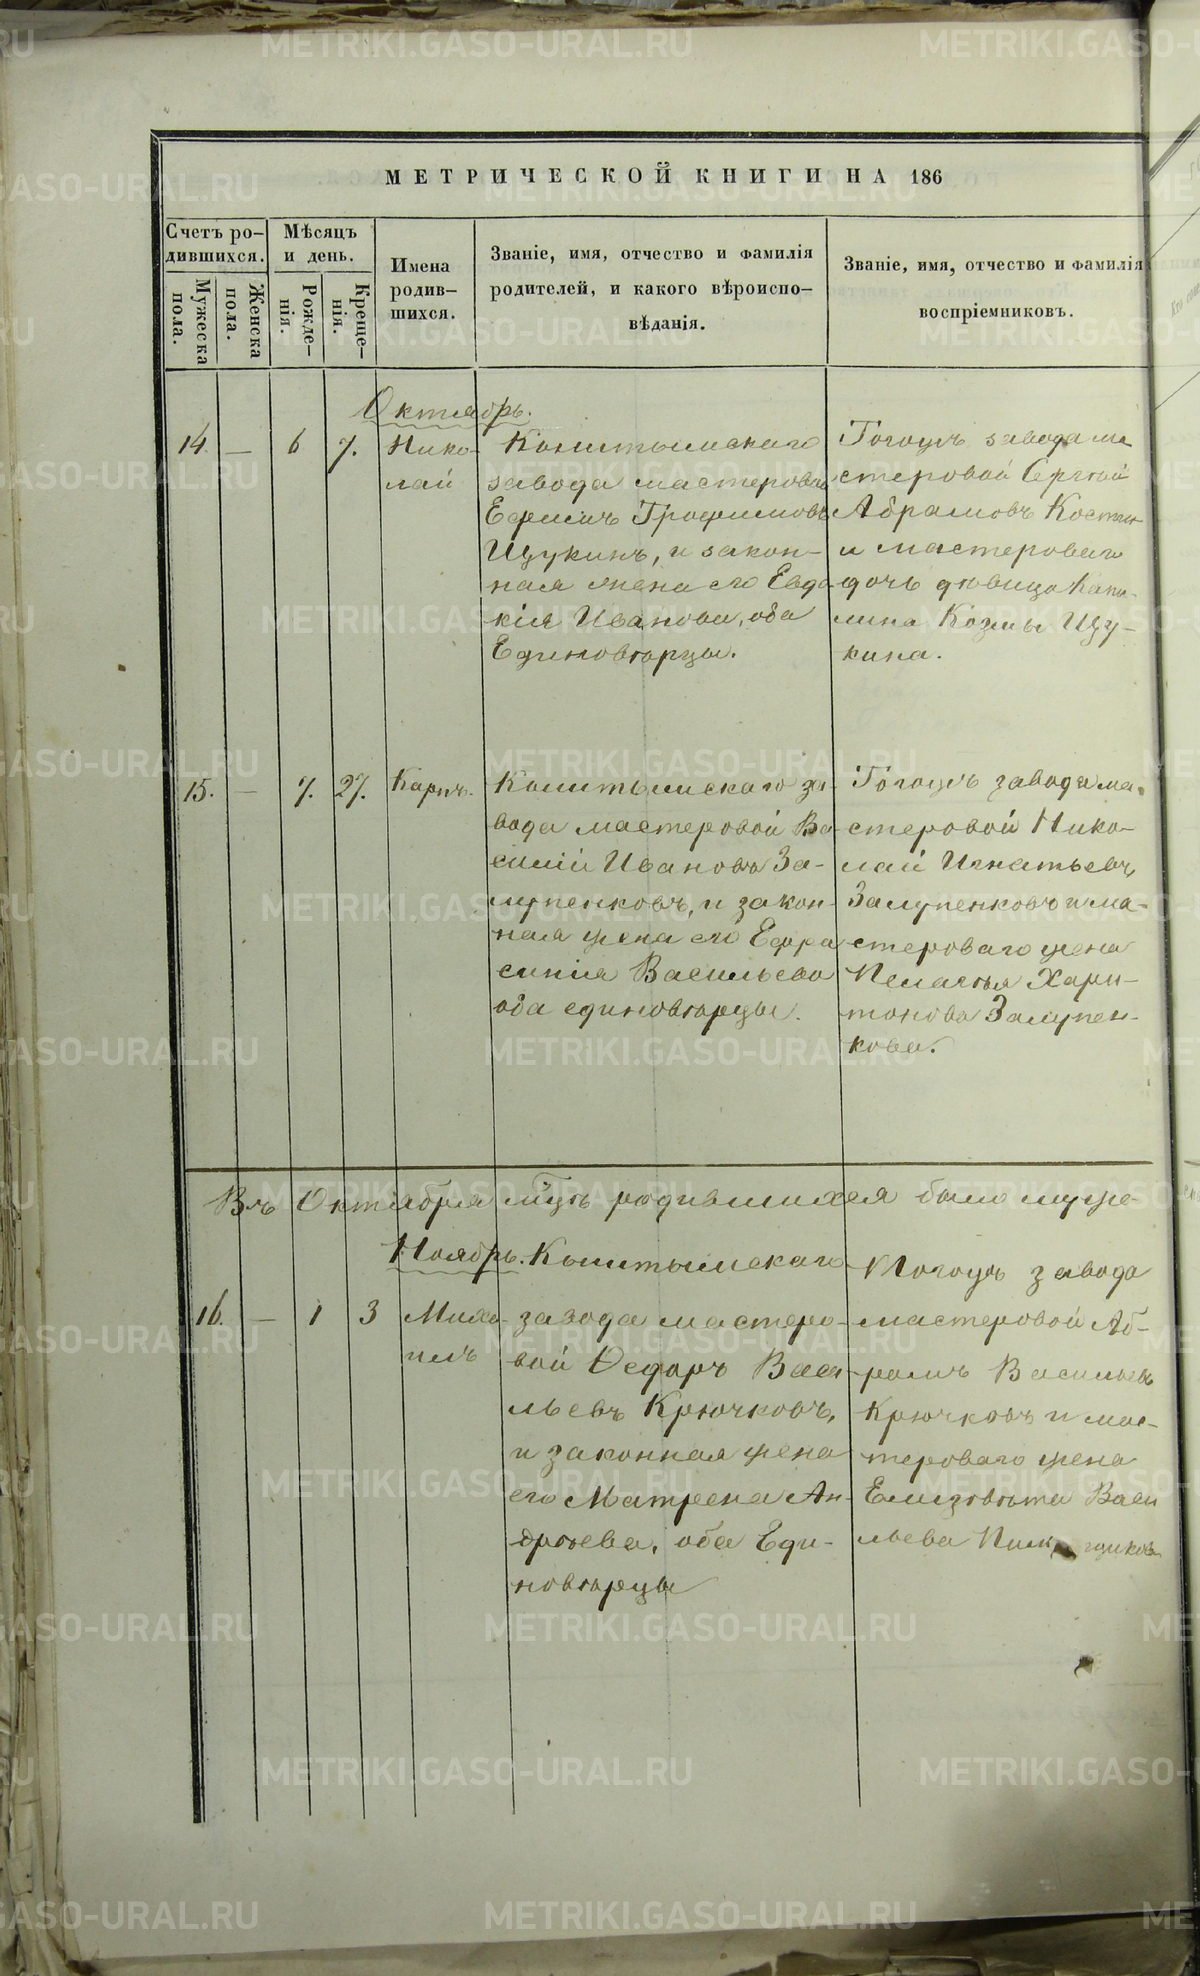 МЕТРИЧЕСКОЙ КНИГИ НА 186
Счетъ ро-
дившихся.
Мужеска
пола.
Женска
пола.
Мѣсяцъ
и день.
Рожде-
нія.
Креще-
нія.
Имена
родив-
шихся.
Званіе, имя, отчество и фамилія
родителей, и какого вѣроиспо-
вѣданія.
Званіе, имя, отчество и фамилія
воспріемниковъ.
Октябрь.
14. — 6 7.
Нико-
лай
Коштымскаго
завода мастеровой
Ефимъ Трофимовъ
Щукинъ, и закон-
ная жена его Евдо
кія Иванова, оба
Единовѣрцы.
Тогожъ завода ма
стеровой Сергѣй
Абрамовъ Костин
и мастероваго
дочь дѣвица Капи-
лина Козмы Щу-
кина.
15. — 7. 27.
Карпъ.
Коштымскаго за-
вода мастеровой Ва-
силій Ивановъ За-
лупенковъ, и закон-
ная жена его Ефра
синія Васильева
оба единовѣрцы.
Тогожъ завода ма-
стеровой Нико-
лай Игнатьевъ
Залупенковъ и ма-
стероваго жена
Пелагѣя Хари-
тонова Залупен-
кова.
Въ Октябрѣ мцѣ родившихся было муже-
Ноябрь.
16. — 1 3
Миха-
илъ
Кыштымскаго
завода мастеро-
вой Ѳедоръ Васи
льевъ Крючковъ,
и законная жена
его Матрена Ан-
дрѣева, оба Еди-
новѣрцы
Тогожъ завода
мастеровой Аб-
рамъ Васильевъ
Крючковъ и мас-
тероваго жена
Елизавѣта Васи
льева
METRIKI.GASO-URAL.RU